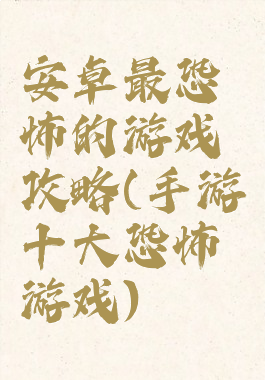 安卓最恐
怖的游戏
攻略(手游
十大恐怖
游戏)